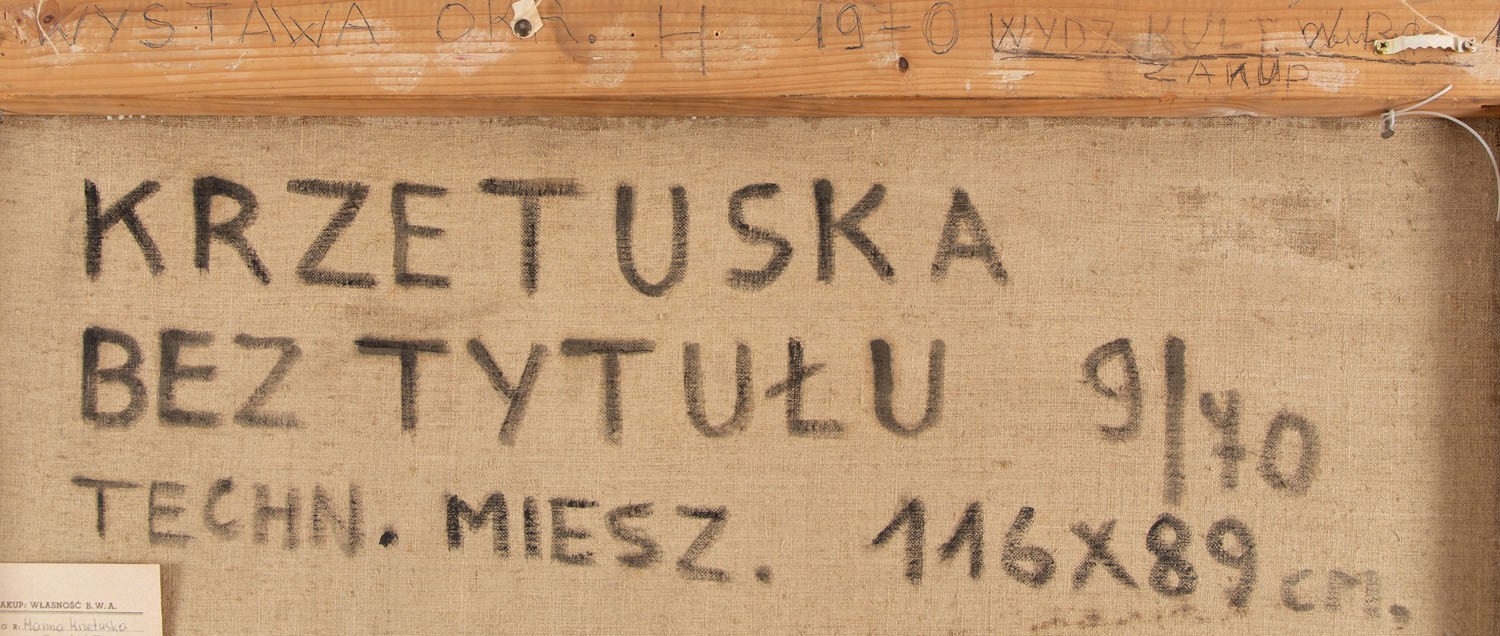 WYSTAWA OKR. H 1970 WYDZ. KULT.
ZAKUP
KRZETUSKA
BEZ TYTUŁU 9/70
TECHN. MIESZ. 116X89 cm.
AKUP: WŁASNOŚĆ B.W.A.
O R: Hanna Krzetuska